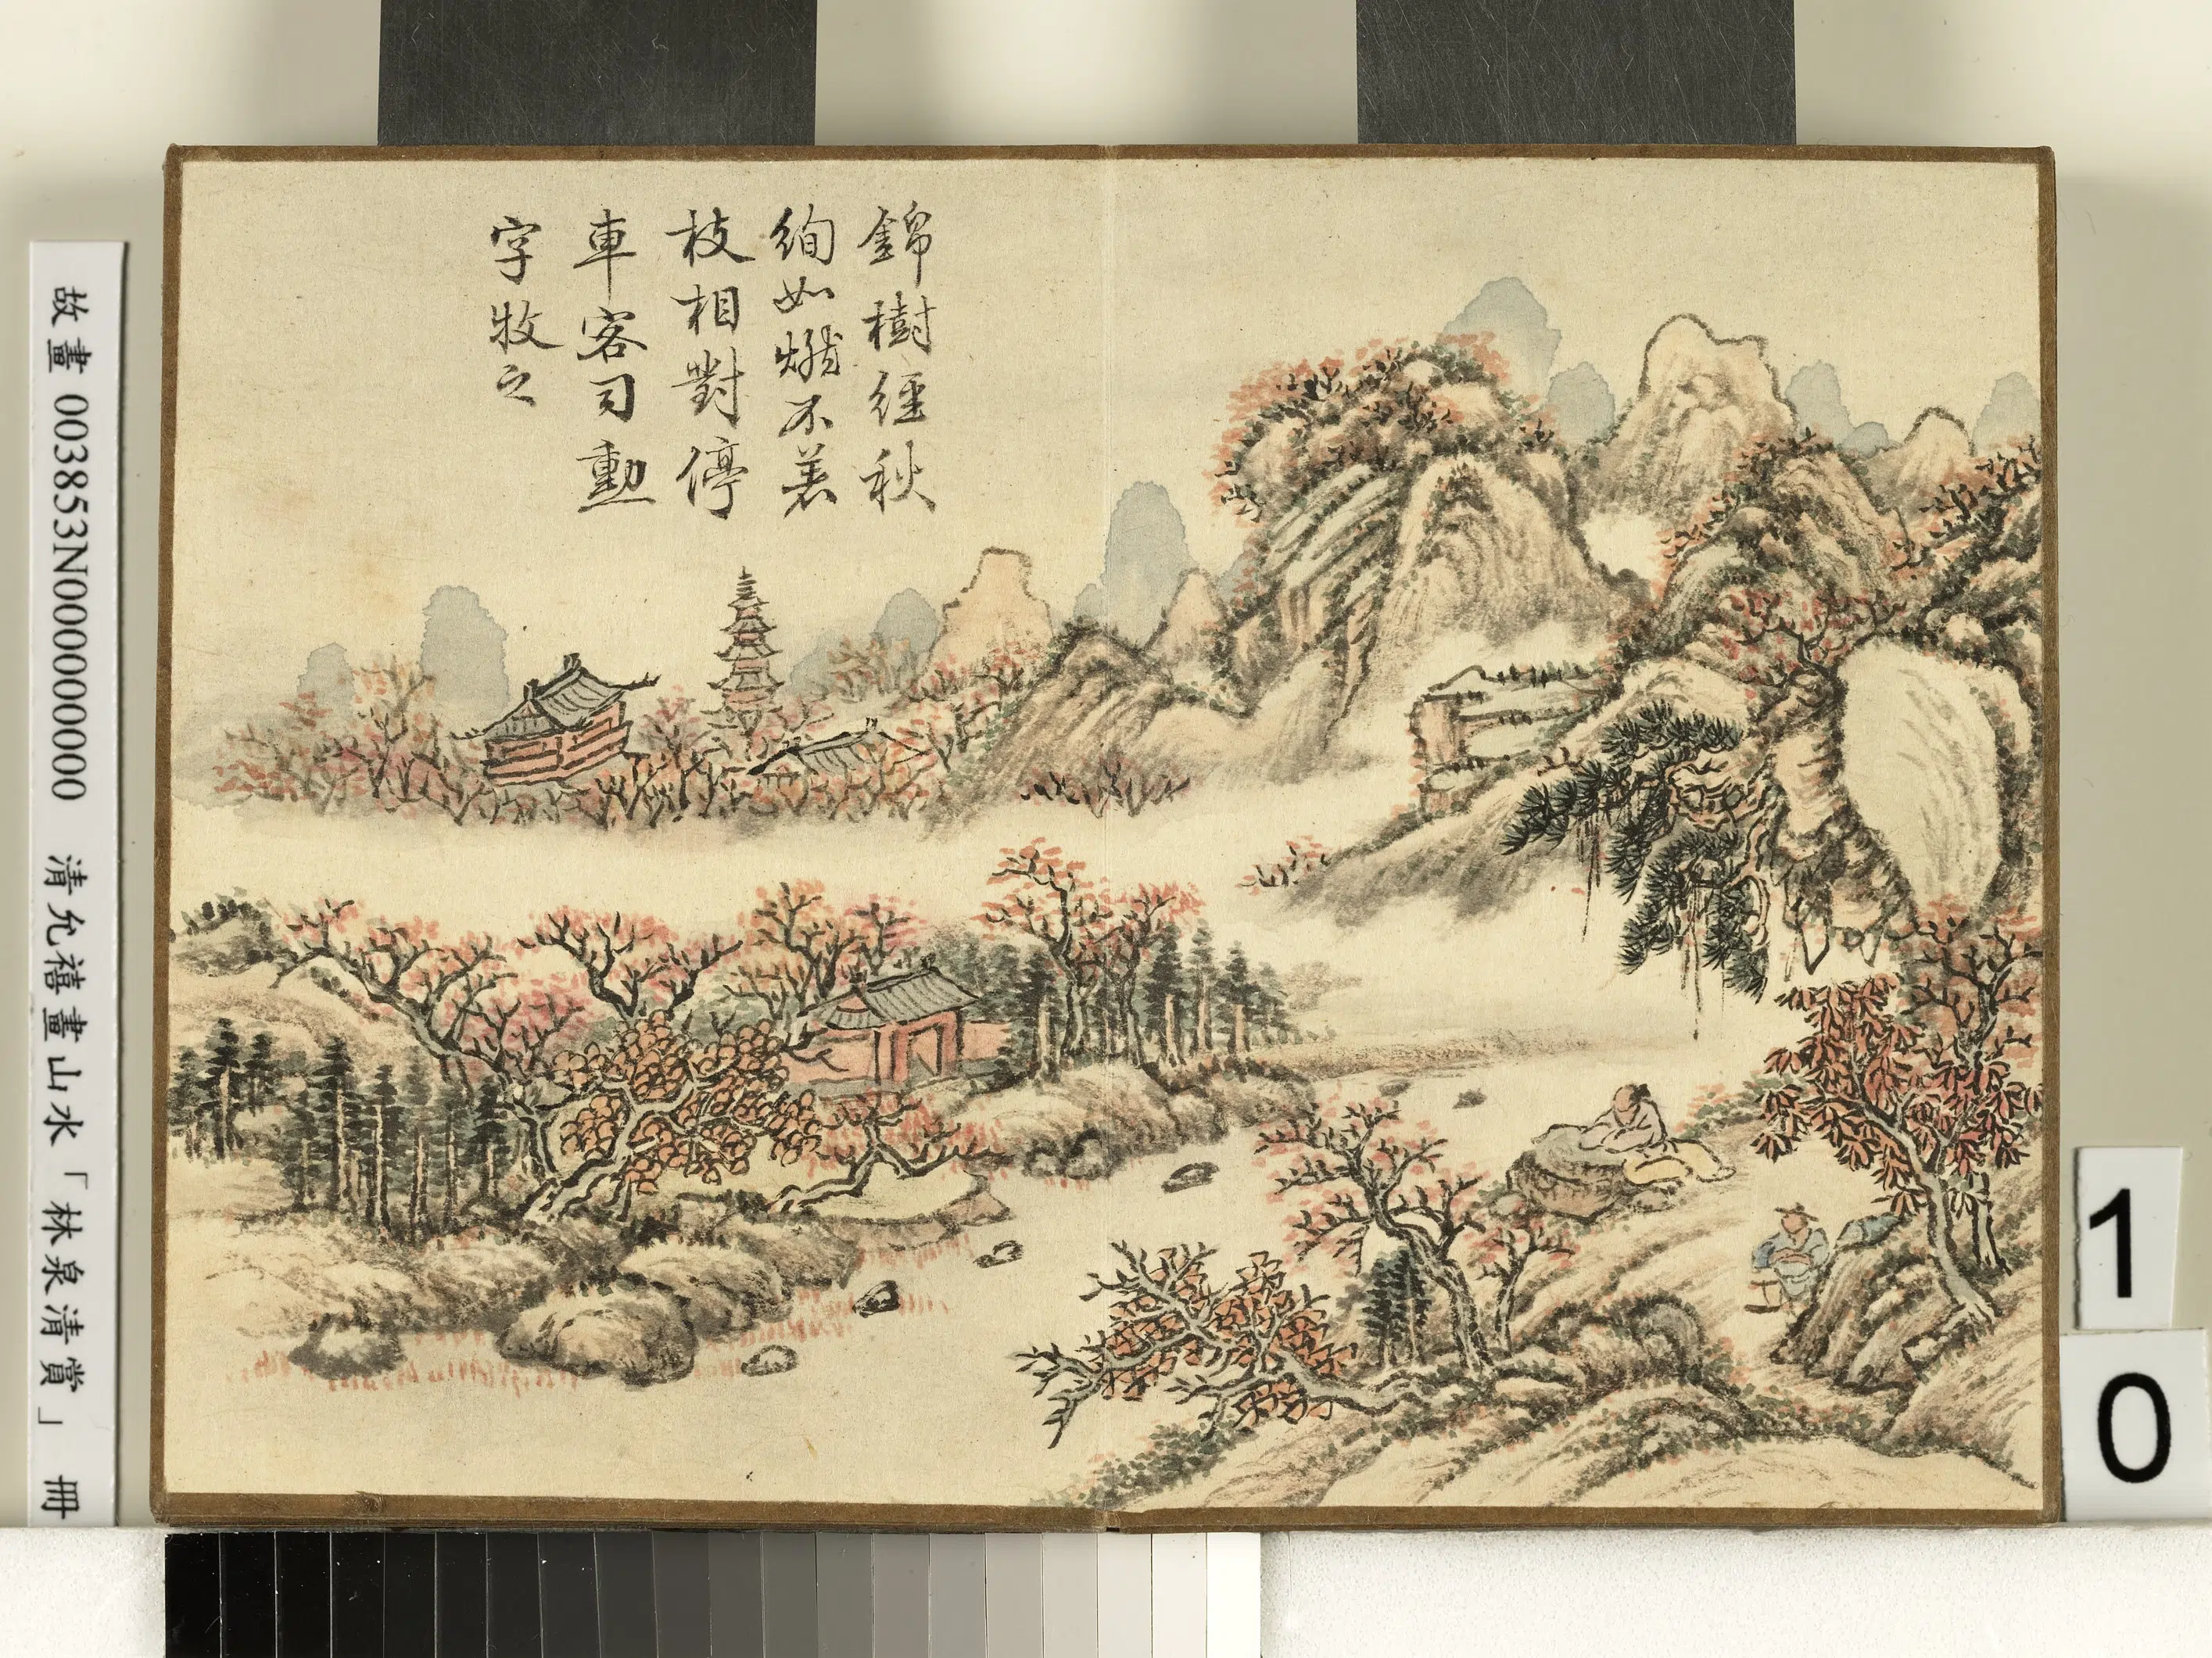 錦樹經秋
絢如燃不著
枝相對停
車客司勳
字牧之
故畫 003853N000000000 清允禧畫山水「林泉清賞」 冊
10